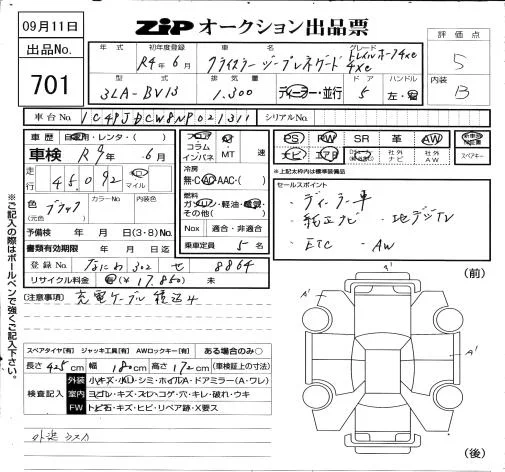 09月11日
ZiP オークション出品票
出品No. 701
年式 初年度登録 車名 グレード
R4年6月 クライスラー ジープレネゲード トレイルホーク4xe
4xe
評価点 5
型式 排気量 ドア ハンドル
3LA-BV13 1,300 ディーラー・並行 5 左・右
内装 B
車台No. 1C4PJDCW8NP021311 シリアルNo.
車歴 自家用・レンタ・( )
車検 R9年 6月
走行 45092 km マイル
色 ブラック カラーNo. 内装色
(元色)
予備検 年 月 日(3・8)No.
書類有効期限 年 月 日迄
登録No. なにわ 302 せ 8864
リサイクル料金 (¥17,850) 未
フロア コラム インパネ AT MT 速
冷房
無・C・AC・AAC・( )
燃料
ガソリン・軽油・電気・その他( )
Nox 適合・非適合
乗車定員 5名
PS PW SR 革 AW
ナビ エアB 社外ナビ 社外AW
新車時保証書
スペアキー
※上記太枠内は標準装備品
セールスポイント
・ディーラー車
・純正ナビ ・地デジTV
・ETC ・AW
※ご記入の際はボールペンで強くご記入下さい。
(注意事項) 充電ケーブル積込み
スペアタイヤ[有] ジャッキ工具[有] AWロックキー[有] ある場合のみ○
長さ 425cm 幅 180cm 高さ 172cm (車検証上の寸法)
検査記入
外装 小キズ・小凹・シミ・ホイルA・ドアミラー(A・ワレ)
室内 ヨゴレ・キズ・スレ・コゲ・穴・キレ・破れ・ウキ
FW トビ石・キズ・ヒビ・リペア跡・X要ス
(前)
A' A' A'
(後)